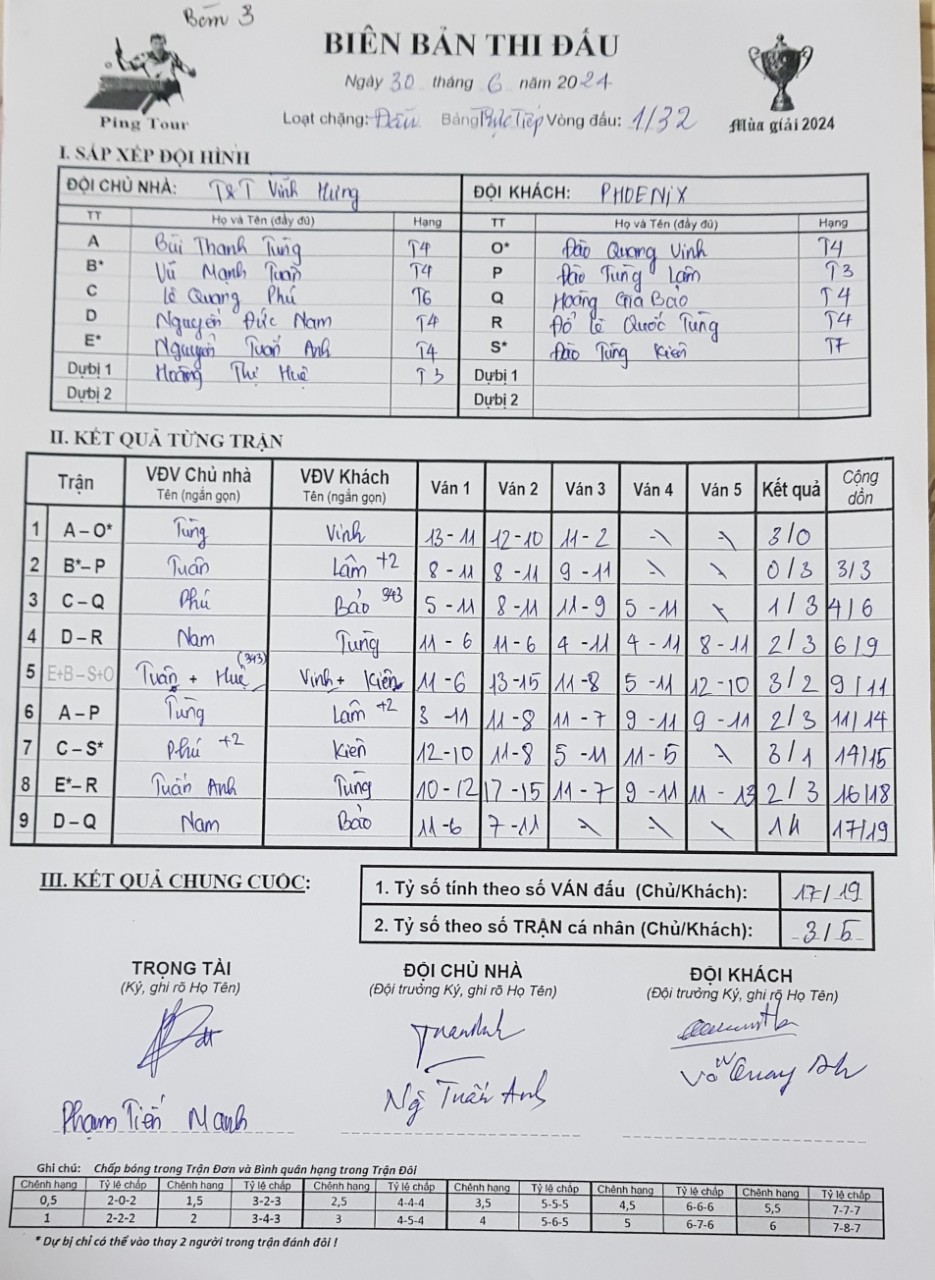 Bàn 3
BIÊN BẢN THI ĐẤU
Ngày 30 tháng 6 năm 2024
Ping Tour
Loạt chặng: Đấu Bảng Trực Tiếp Vòng đấu: 1/32
Mùa giải 2024
I. SẮP XẾP ĐỘI HÌNH
ĐỘI CHỦ NHÀ: T&T Vĩnh Hưng ĐỘI KHÁCH: PHOENIX
TT Họ và Tên (đầy đủ) Hạng TT Họ và Tên (đầy đủ) Hạng
A Bùi Thanh Tùng T4 O* Đào Quang Vinh T4
B* Vũ Mạnh Tuấn T4 P Đào Tùng Lâm T3
C Lê Quang Phú T6 Q Hoàng Gia Bảo T4
D Nguyễn Đức Nam T4 R Đỗ Lê Quốc Tùng T4
E* Nguyễn Tuấn Anh T4 S* Đào Tùng Kiên T7
Dự bị 1 Hoàng Thị Huệ T3 Dự bị 1
Dự bị 2 Dự bị 2
II. KẾT QUẢ TỪNG TRẬN
Trận VĐV Chủ nhà Tên (ngắn gọn) VĐV Khách Tên (ngắn gọn) Ván 1 Ván 2 Ván 3 Ván 4 Ván 5 Kết quả Cộng dồn
1 A – O* Tùng Vinh 13 - 11 12 - 10 11 - 2 3/0
2 B* – P Tuấn Lâm +2 8 - 11 8 - 11 9 - 11 0/3 3/3
3 C – Q Phú Bảo 343 5 - 11 8 - 11 11 - 9 5 - 11 1/3 4/6
4 D – R Nam Tùng 11 - 6 11 - 6 4 - 11 4 - 11 8 - 11 2/3 6/9
5 E+B – S+O Tuấn + Huệ (343) Vinh + Kiên 11 - 6 13 - 15 11 - 8 5 - 11 12 - 10 3/2 9/11
6 A – P Tùng Lâm +2 3 - 11 11 - 8 11 - 7 9 - 11 9 - 11 2/3 11/14
7 C – S* Phú +2 Kiên 12 - 10 11 - 8 5 - 11 11 - 5 3/1 14/15
8 E* – R Tuấn Anh Tùng 10 - 12 17 - 15 11 - 7 9 - 11 11 - 13 2/3 16/18
9 D – Q Nam Bảo 11 - 6 7 - 11 1/1 17/19
III. KẾT QUẢ CHUNG CUỘC:
1. Tỷ số tính theo số VÁN đấu (Chủ/Khách): 17/19
2. Tỷ số theo số TRẬN cá nhân (Chủ/Khách): 3/5
TRỌNG TÀI ĐỘI CHỦ NHÀ ĐỘI KHÁCH
(Ký, ghi rõ Họ Tên) (Đội trưởng Ký, ghi rõ Họ Tên) (Đội trưởng Ký, ghi rõ Họ Tên)
Phạm Tiến Mạnh Ng Tuấn Anh
Ghi chú: Chấp bóng trong Trận Đơn và Bình quân hạng trong Trận Đôi
Chênh hạng Tỷ lệ chấp Chênh hạng Tỷ lệ chấp Chênh hạng Tỷ lệ chấp Chênh hạng Tỷ lệ chấp Chênh hạng Tỷ lệ chấp Chênh hạng Tỷ lệ chấp
0,5 2-0-2 1,5 3-2-3 2,5 4-4-4 3,5 5-5-5 4,5 6-6-6 5,5 7-7-7
1 2-2-2 2 3-4-3 3 4-5-4 4 5-6-5 5 6-7-6 6 7-8-7
* Dự bị chỉ có thể vào thay 2 người trong trận đánh đôi !